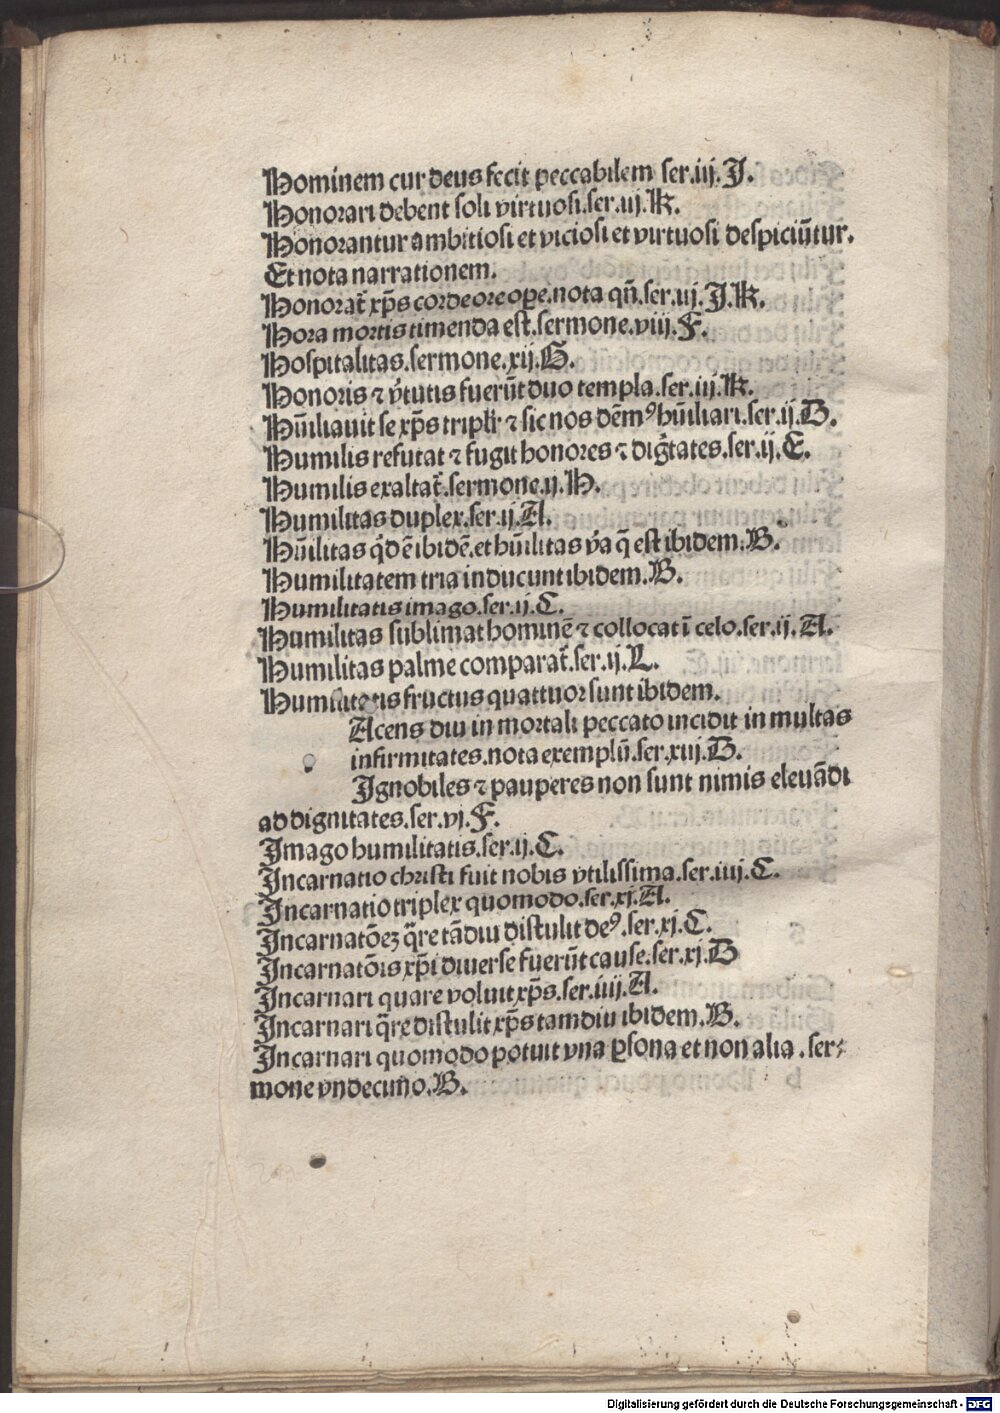 Hominem cur deus fecit peccabilem ser.iij.J.
Honorari debent soli virtuosi.ser.iij.K.
Honorantur ambitiosi et viciosi et virtuosi despiciūtur.
Et nota narrationem.
Honorat̄ xp̄s corde ore oꝑe.nota qn̄.ser.iij.J.K.
Hora mortis timenda est.sermone.viij.F.
Hospitalitas.sermone.xij.G.
Honoris ⁊ v̄tutis fuerūt duo templa.ser.iij.K.
Hūiliauit se xp̄s triplr̄ ⁊ sic nos dēmꝰ hūiliari.ser.ij.D.
Humilis refutat ⁊ fugit honores ⁊ diḡtates.ser.ij.E.
Humilis exaltat̄.sermone.ij.H.
Humilitas duplex.ser.ij.A.
Hūilitas q̇d ē ibidē.et hūilitas v̄a q̄ est ibidem.B.
Humilitatem tria inducunt ibidem.B.
Humilitatis imago.ser.ij.C.
Humilitas sublimat hominē ⁊ collocat ī celo.ser.ij.A.
Humilitas palme comparat̄.ser.ij.L.
Humilitatis fructus quattuor sunt ibidem.
Acens diu in mortali peccato incidit in multas
infirmitates.nota exemplū.ser.xiij.D.
Ignobiles ⁊ pauperes non sunt nimis eleuādi
ad dignitates.ser.vj.F.
Imago humilitatis.ser.ij.C.
Incarnatio christi fuit nobis vtilissima.ser.iiij.C.
Incarnatio triplex quomodo.ser.xj.A.
Incarnatōeꝫ q̄re tādiu distulit deꝰ.ser.xj.C.
Incarnatōis xp̄i diuerse fuerūt cause.ser.xj.D
Incarnari quare voluit xp̄s.ser.iiij.A.
Incarnari q̄re distulit xp̄s tamdiu ibidem.B.
Incarnari quomodo potuit vna ꝑsona et non alia .ser⸗
mone vndecimo.B.
Digitalisierung gefördert durch die Deutsche Forschungsgemeinschaft - DFG